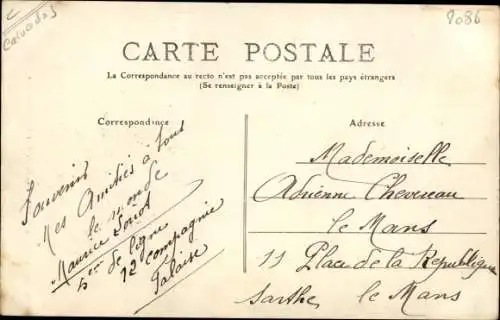 C
Calvados
8086
CARTE POSTALE
La Correspondance au recto n'est pas acceptée par tous les pays étrangers
(Se renseigner à la Poste)
Correspondance
Souvenir
Mes Amitiés à tout
le monde
Maurice
5me de ligne
12 compagnie
Falaise
Adresse
Mademoiselle
Adrienne Chevereau
le Mans
11 Place de la République
Sarthe le Mans